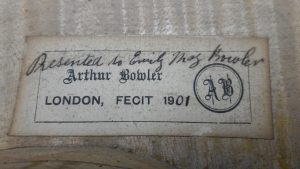 Presented to Emily May Bowler
Arthur Bowler
LONDON, FECIT 1901
AB